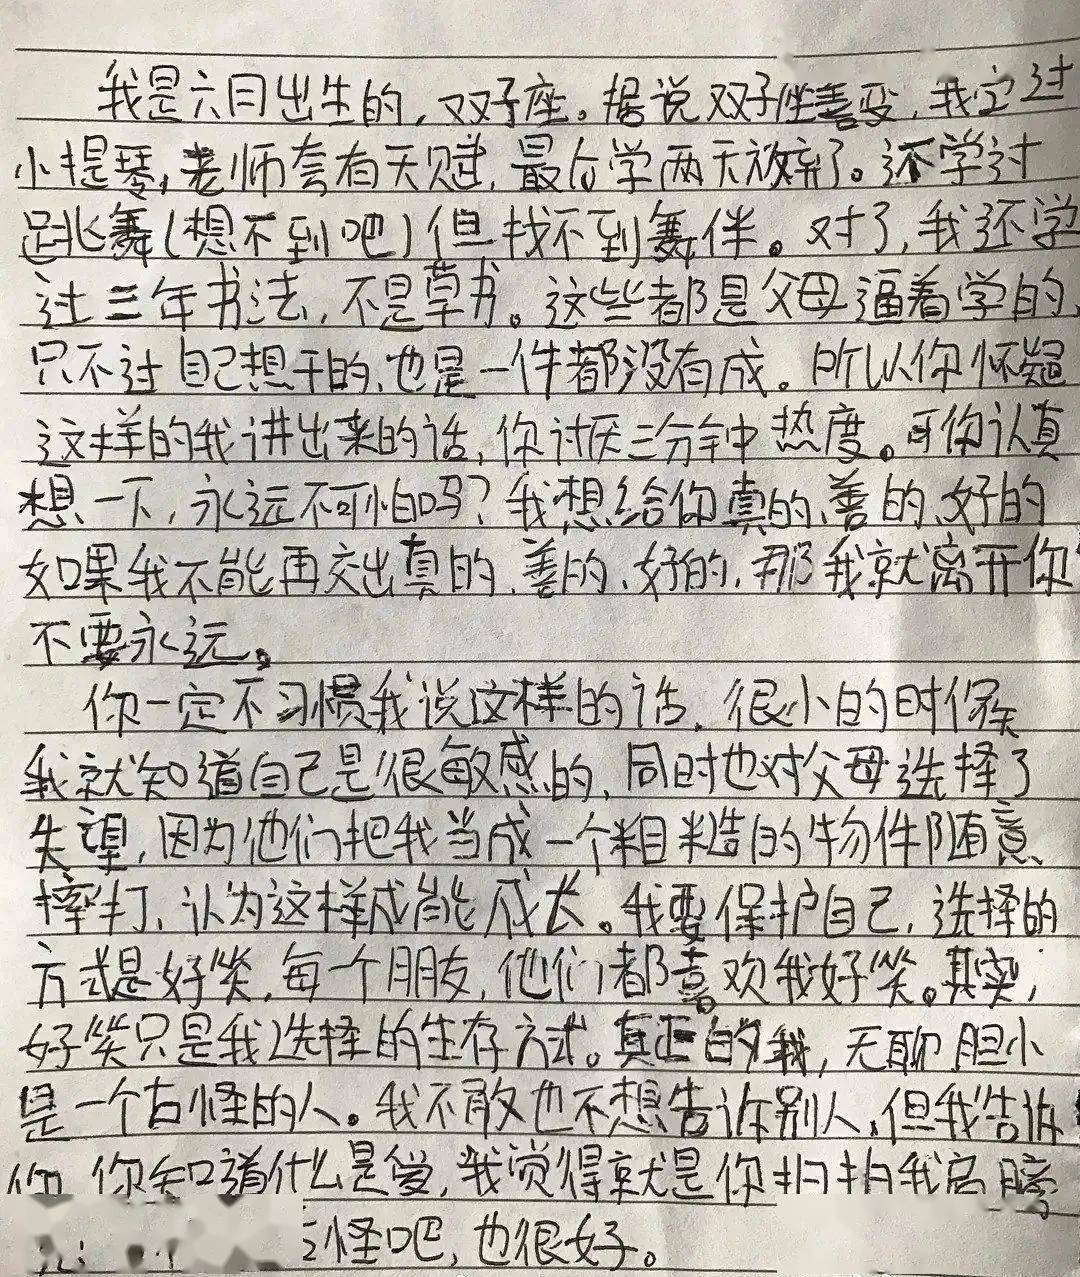 我是六月出生的，双子座。据说双子座善变，我学过
小提琴，老师夸有天赋，最后学两天放弃了。还学过
跳舞（想不到吧）但找不到舞伴。对了，我还学
过三年书法，不是草书。这些都是父母逼着学的，
只不过自己想干的、也是一件都没有成。所以你怀疑
这样的我讲出来的话，你讨厌三分钟热度。可你认真
想一下，永远不可怕吗？我想给你真的、善的、好的
如果我不能再交出真的、善的、好的，那我就离开你
不要永远。
你一定不习惯我说这样的话，很小的时候
我就知道自己是很敏感的，同时也对父母选择了
失望，因为他们把我当成一个粗糙的物件随意
摔打、认为这样成能成长。我要保护自己，选择的
方式是好笑，每一个朋友，他们都喜欢我好笑。其实，
好笑只是我选择的生存方式。真正的我，无聊胆小
是一个古怪的人。我不敢也不想告诉别人，但我告诉
你 你知道什么是爱，我觉得就是你拍拍我肩膀
怪吧，也很好。